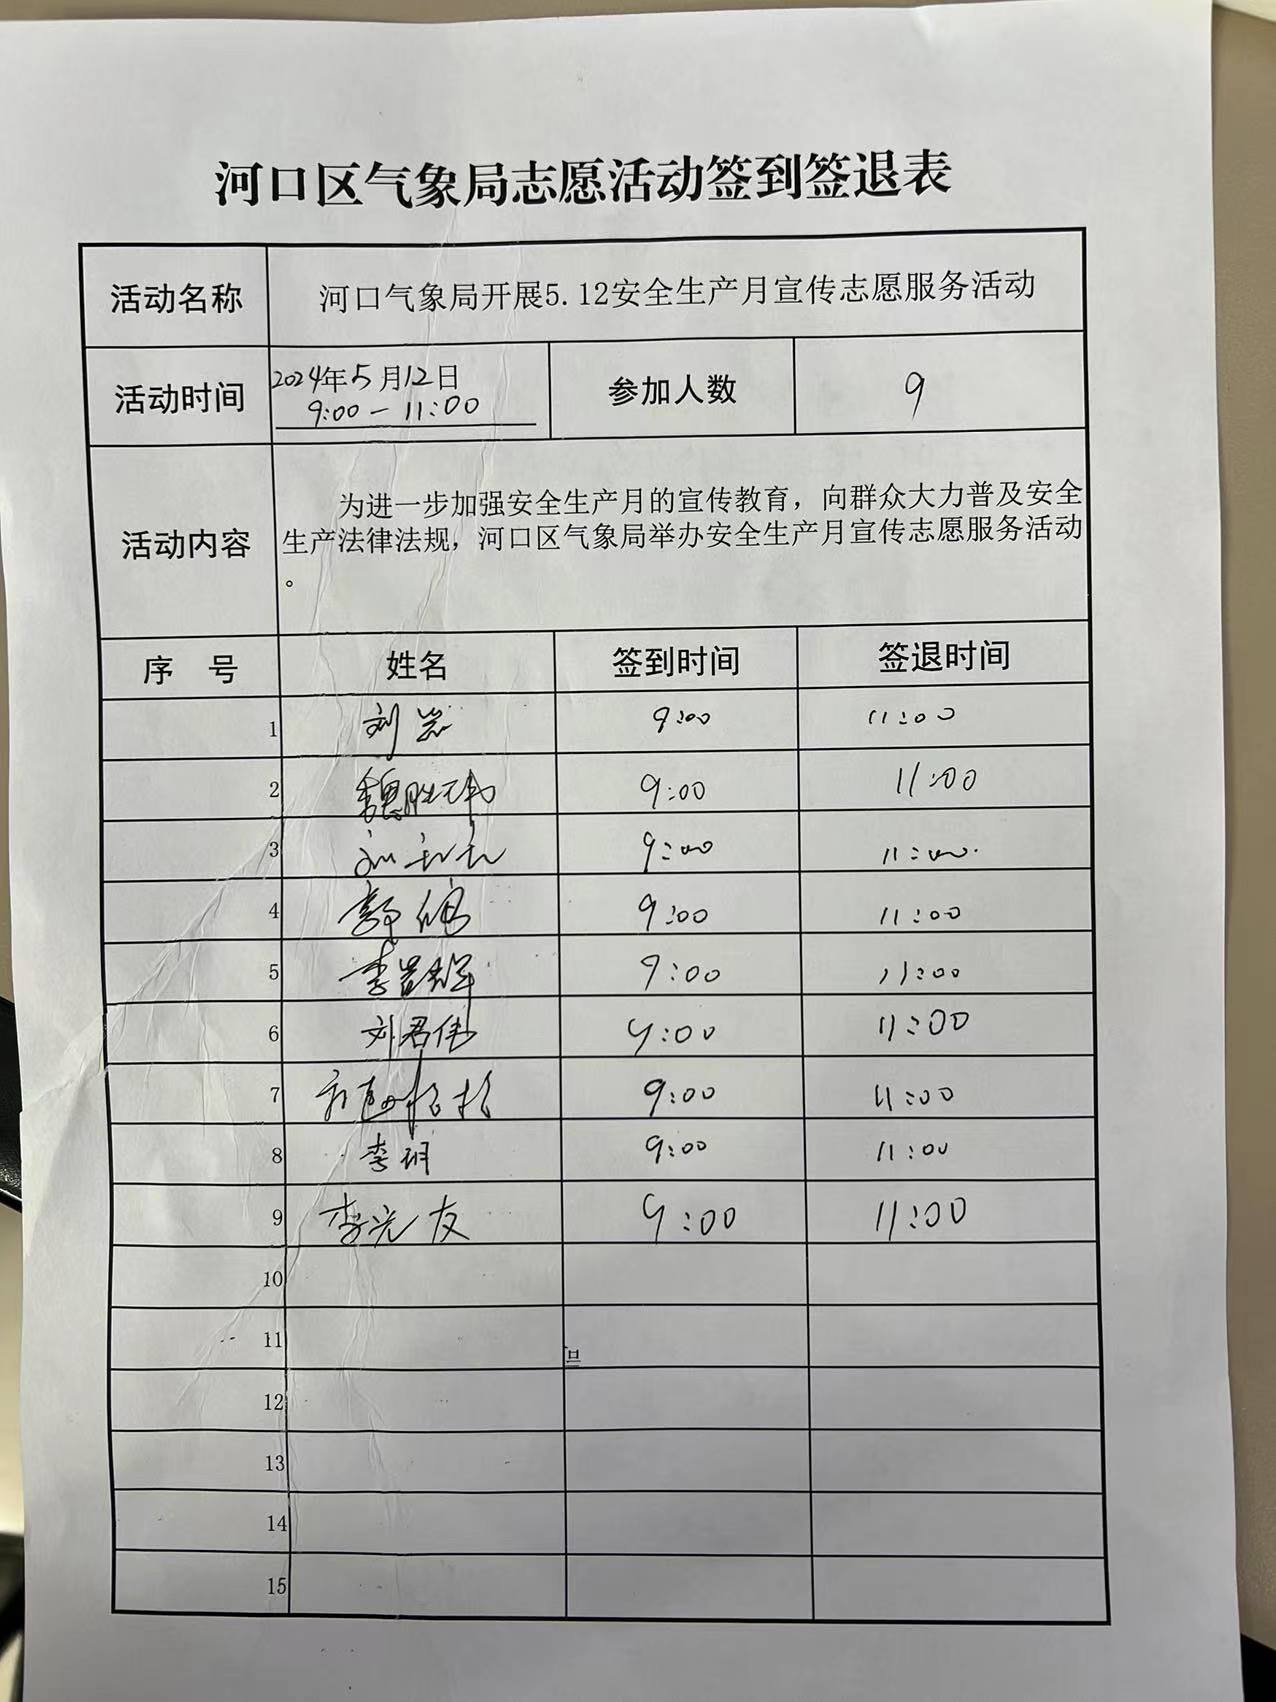 河口区气象局志愿活动签到签退表
活动名称 河口气象局开展5.12安全生产月宣传志愿服务活动
活动时间 2024年5月12日 参加人数 9
9:00-11:00
为进一步加强安全生产月的宣传教育，向群众大力普及安全
活动内容 生产法律法规，河口区气象局举办安全生产月宣传志愿服务活动
。
序 号 姓名 签到时间 签退时间
1 刘 9:00 11:00
2 魏胜伟 9:00 11:00
3 9:00 11:00
4 郭伟 9:00 11:00
5 李 9:00 11:00
6 刘君伟 9:00 11:00
7 9:00 11:00
8 李玥 9:00 11:00
9 李光友 9:00 11:00
10
11
12
13
14
15